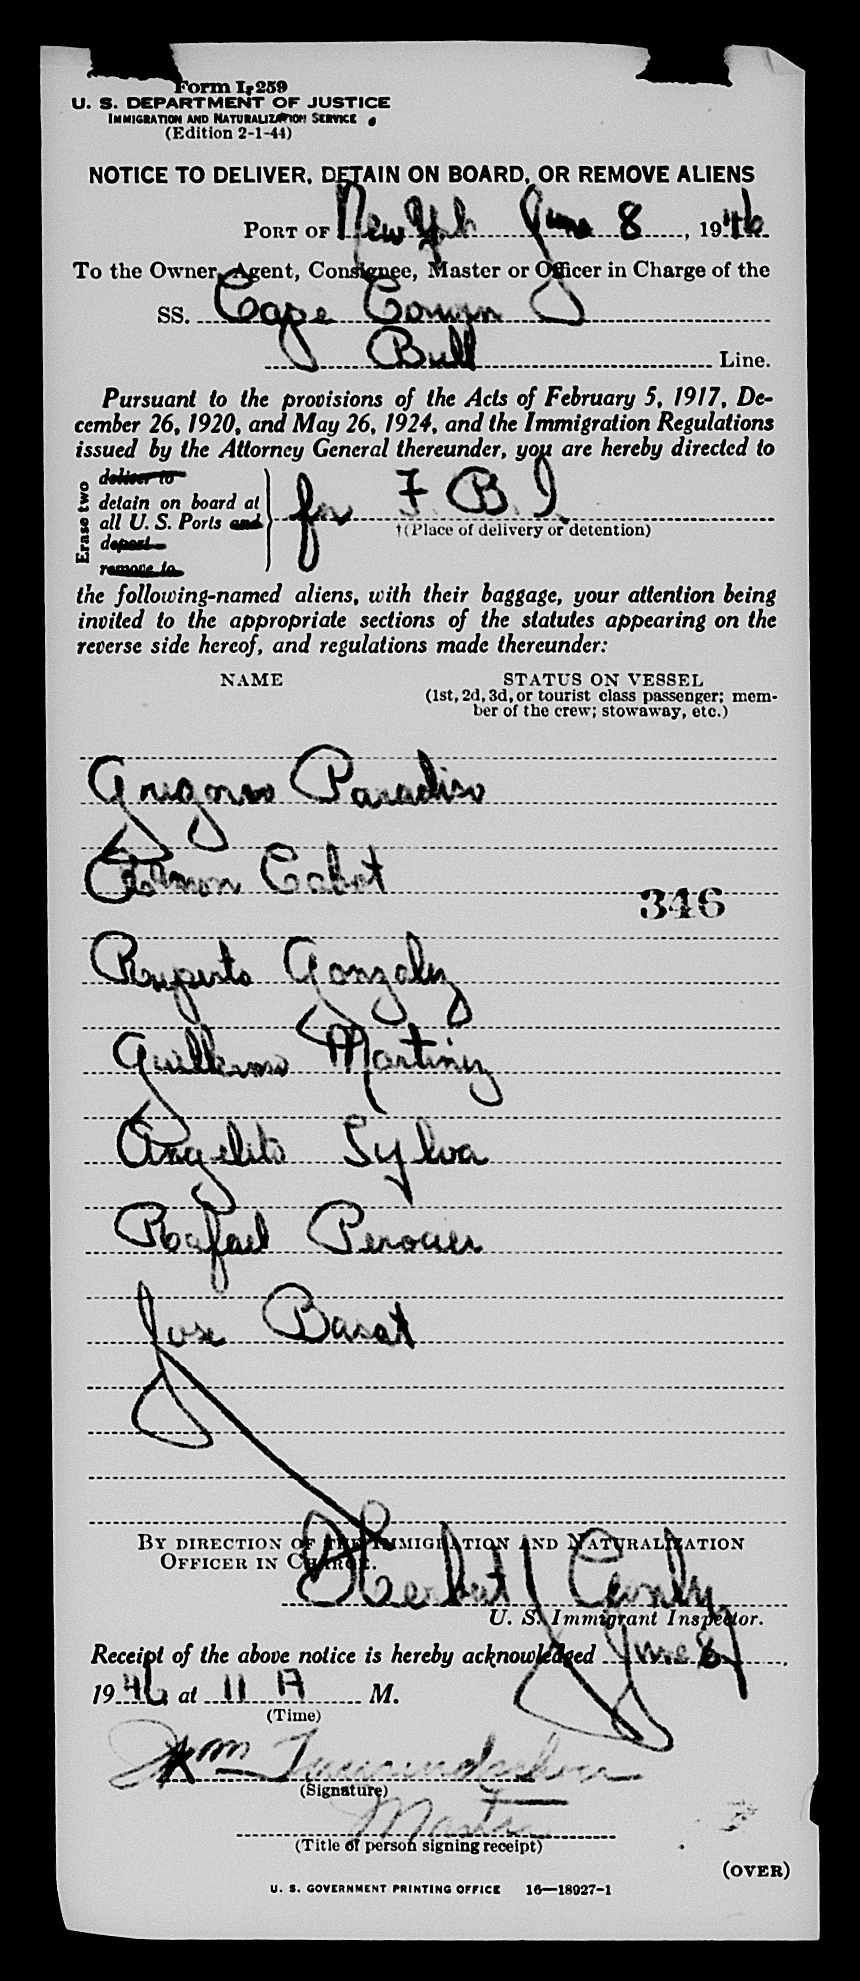 Form I-259
U. S. DEPARTMENT OF JUSTICE
IMMIGRATION AND NATURALIZATION SERVICE
(Edition 2-1-44)
NOTICE TO DELIVER, DETAIN ON BOARD, OR REMOVE ALIENS
PORT OF New York June 8, 1946
To the Owner, Agent, Consignee, Master or Officer in Charge of the
SS. Cape
Bull Line.
Pursuant to the provisions of the Acts of February 5, 1917, De-
cember 26, 1920, and May 26, 1924, and the Immigration Regulations
issued by the Attorney General thereunder, you are hereby directed to
Erase two
deliver to
detain on board at
all U. S. Ports and
deport
remove to
for F. B. I.
†(Place of delivery or detention)
the following-named aliens, with their baggage, your attention being
invited to the appropriate sections of the statutes appearing on the
reverse side hereof, and regulations made thereunder:
NAME STATUS ON VESSEL
(1st, 2d, 3d, or tourist class passenger; mem-
ber of the crew; stowaway, etc.)
Gregorio Paradiso
Cabot
346
Ruperto Gonzalez
Guillermo Martinez
Angelito Sylva
Rafael
Jose Basat
BY DIRECTION OF THE IMMIGRATION AND NATURALIZATION
OFFICER IN CHARGE.
Herbert J
U. S. Immigrant Inspector.
Receipt of the above notice is hereby acknowledged June 8
1946 at 11 A M.
(Time)
Wm
(Signature)
Master
(Title of person signing receipt)
(OVER)
U. S. GOVERNMENT PRINTING OFFICE 16—18927-1